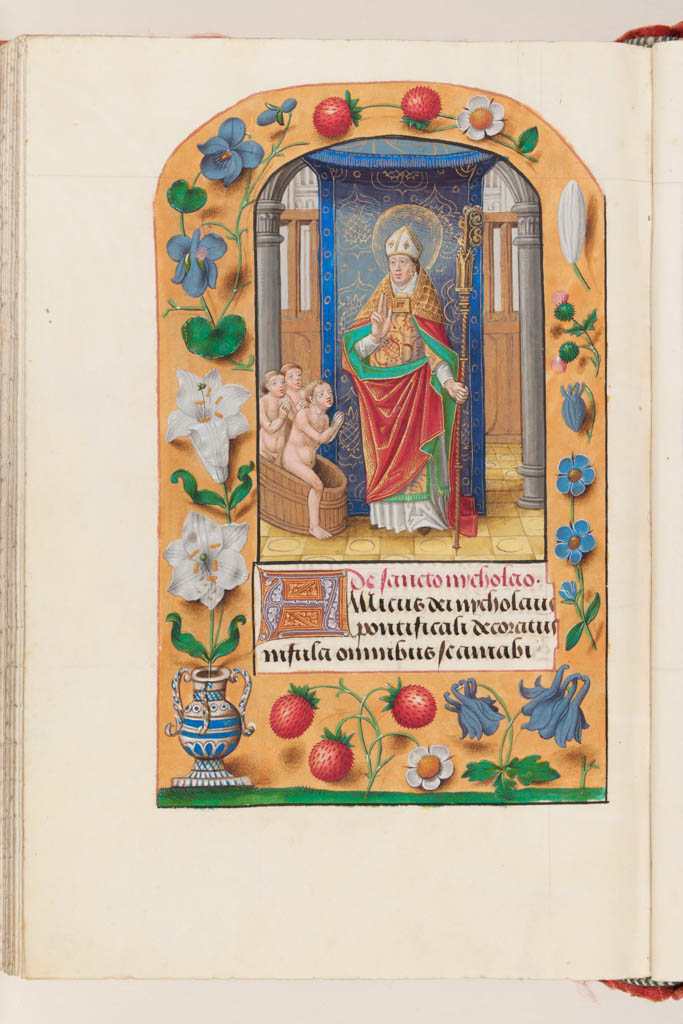 De sancto nycholao.
AMicus dei nycholaus
pontificali decoratus
infula omnibus se amabi